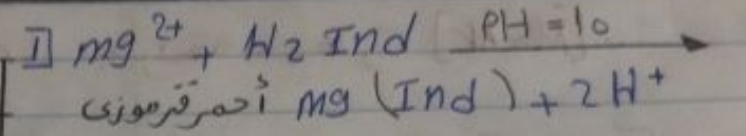 I mg²⁺ + H₂ Ind PH = 10 →
أحمر قرموزى mg (Ind) + 2H⁺